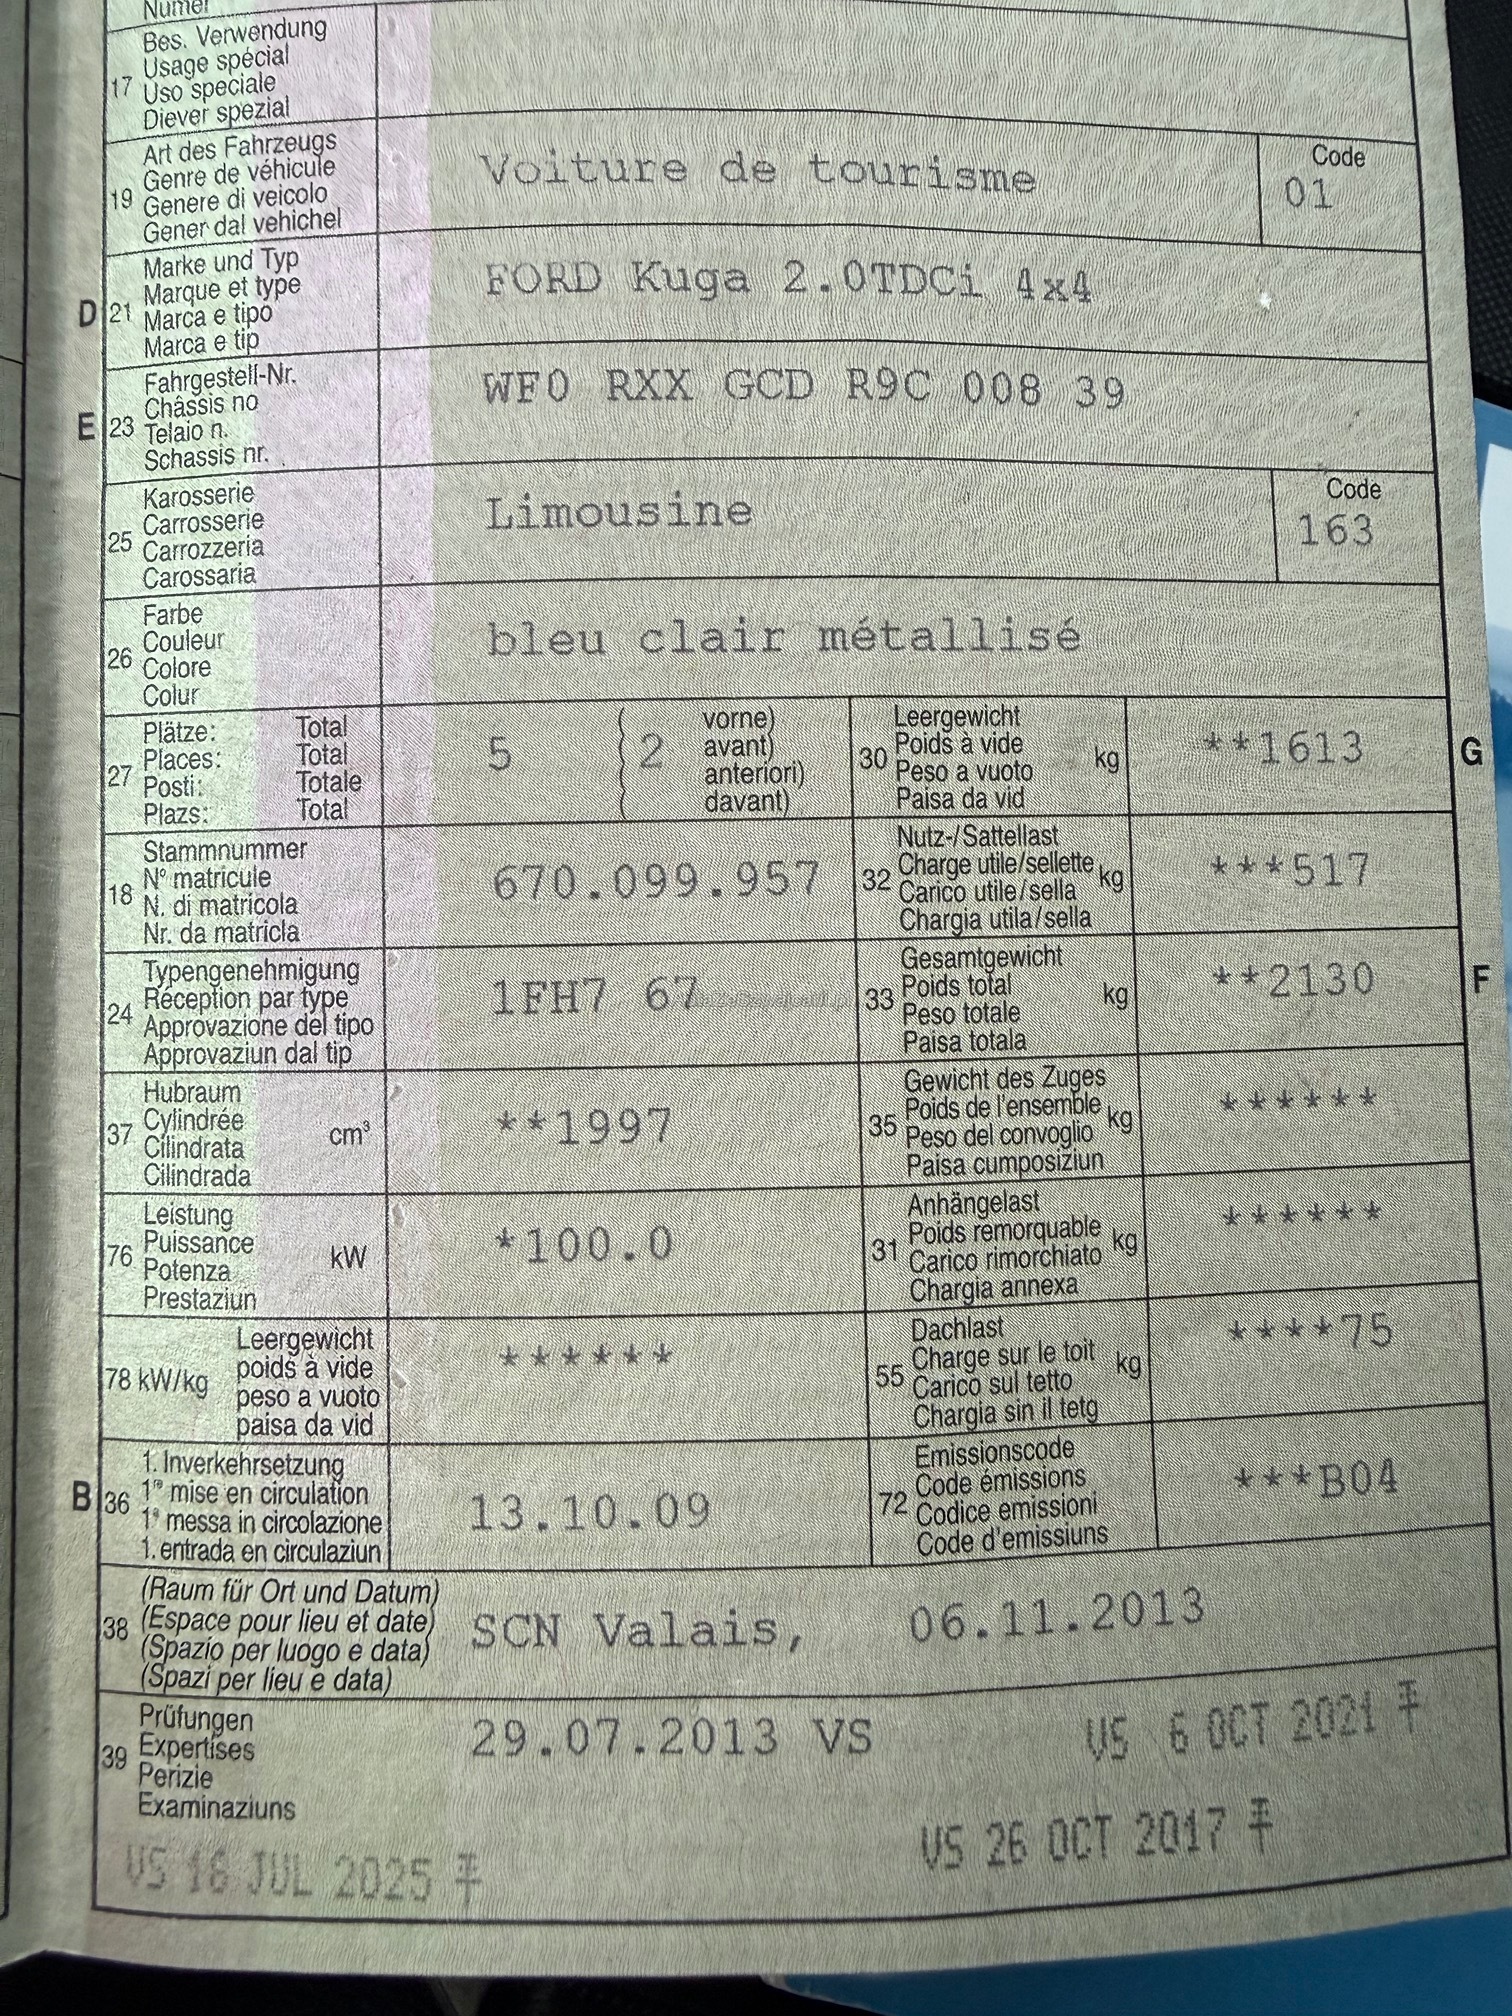 Numer
17
Bes. Verwendung
Usage spécial
Uso speciale
Diever spezial
19
Art des Fahrzeugs
Genre de véhicule
Genere di veicolo
Gener dal vehichel
Voiture de tourisme
Code
01
D 21
Marke und Typ
Marque et type
Marca e tipo
Marca e tip
FORD Kuga 2.0TDCi 4x4
E 23
Fahrgestell-Nr.
Châssis no
Telaio n.
Schassis nr.
WF0 RXX GCD R9C 008 39
25
Karosserie
Carrosserie
Carrozzeria
Carossaria
Limousine
Code
163
26
Farbe
Couleur
Colore
Colur
bleu clair métallisé
27
Plätze: Total
Places: Total
Posti: Totale
Plazs: Total
5
( 2 vorne)
( avant)
( anteriori)
( davant)
30
Leergewicht
Poids à vide
Peso a vuoto
Paisa da vid
kg
**1613
G
18
Stammnummer
N° matricule
N. di matricola
Nr. da matricla
670.099.957
32
Nutz-/Sattellast
Charge utile/sellette
Carico utile/sella
Chargia utila/sella
kg
***517
24
Typengenehmigung
Réception par type
Approvazione del tipo
Approvaziun dal tip
1FH7 67
33
Gesamtgewicht
Poids total
Peso totale
Paisa totala
kg
**2130
F
37
Hubraum
Cylindrée
Cilindrata
Cilindrada
cm³
**1997
35
Gewicht des Zuges
Poids de l'ensemble
Peso del convoglio
Paisa cumposiziun
kg
******
76
Leistung
Puissance
Potenza
Prestaziun
kW
*100.0
31
Anhängelast
Poids remorquable
Carico rimorchiato
Chargia annexa
kg
******
78 kW/kg
Leergewicht
poids à vide
peso a vuoto
paisa da vid
******
55
Dachlast
Charge sur le toit
Carico sul tetto
Chargia sin il tetg
kg
****75
B 36
1. Inverkehrsetzung
1re mise en circulation
1a messa in circolazione
1. entrada en circulaziun
13.10.09
72
Emissionscode
Code émissions
Codice emissioni
Code d'emissiuns
***B04
38
(Raum für Ort und Datum)
(Espace pour lieu et date)
(Spazio per luogo e data)
(Spazi per lieu e data)
SCN Valais, 06.11.2013
39
Prüfungen
Expertises
Perizie
Examinaziuns
29.07.2013 VS
VS 6 OCT 2021
VS 26 OCT 2017
VS 16 JUL 2025